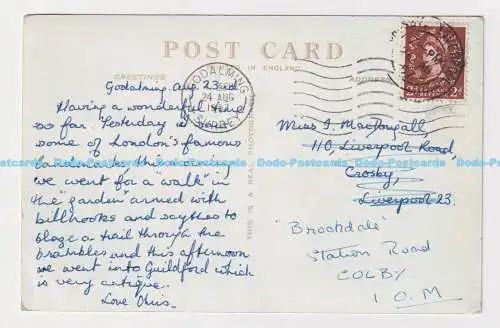 POST CARD
GREETINGS
IN ENGLAND
ADDRESS
THIS IS A REAL PHOTOGRAPH
GODALMING
24 AUG
SURREY
Godalming Aug. 23rd
Having a wonderful time
so far. Yesterday
some of London's famous
landmarks, this morning
we went for a "walk" in
the "garden" armed with
billhooks and scythes to
blaze a trail through the
brambles and this afternoon
we went into Guildford which
is very antique.
Love Chris.
Miss I. MacDougall,
110, Liverpool Road,
Crosby,
Liverpool 23.
"Brookdale"
Station Road
COLBY
I.O.M
Dodo-Postcards Dodo-Postcards Dodo-Postcards Dodo-Postcards Dodo-Postcards Dodo-Postcards